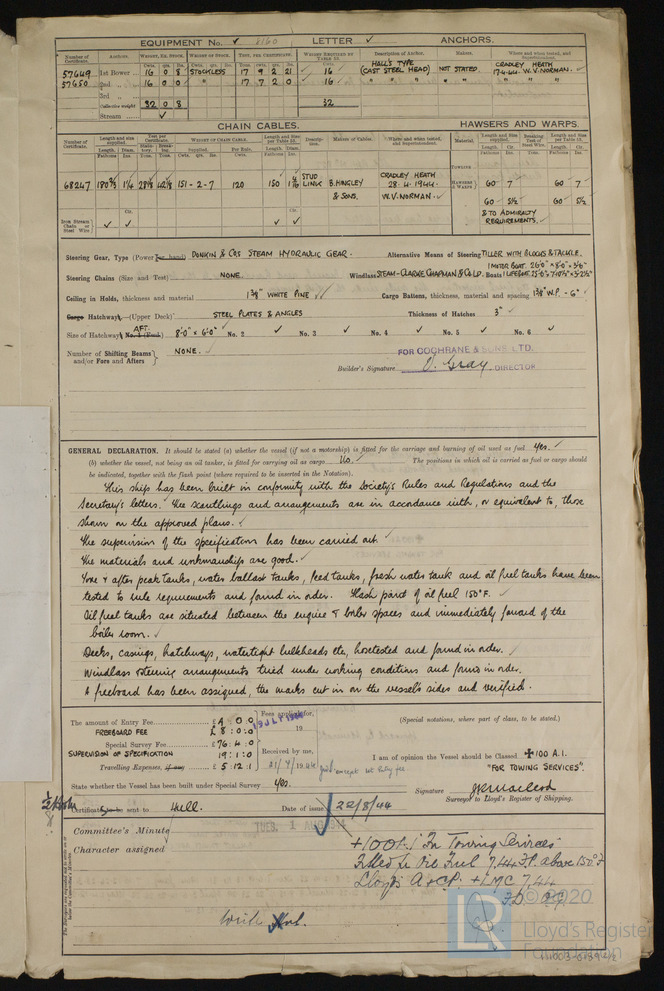 EQUIPMENT No. ✓ 8160 LETTER ✓ ANCHORS.
Number of Certificate. Anchors. WEIGHT, EX. STOCK. WEIGHT OF STOCK. TEST, PER CERTIFICATE. WEIGHT REQUIRED BY TABLE 53. Description of Anchor. Makers. Where and when tested, and Superintendent.
Cwts. qrs. lbs.
57649 1st Bower 16 0 8 STOCKLESS 17 9 2 21 16 HALL'S TYPE (CAST STEEL HEAD) NOT STATED. CRADLEY HEATH 17-4-44. W.V. NORMAN.
57650 2nd „ 16 0 0 " 17 7 2 0 16 " " " " " " "
3rd „
Collective weight 32 0 8 32
Stream ✓
CHAIN CABLES. HAWSERS AND WARPS.
Number of Certificate. Length and size supplied. Test per Certificate. WEIGHT OF CHAIN CABLE. Length and Size per Table 53. Description. Makers of Cables. Where and when tested, and Superintendent. Material Length and Size supplied. Breaking Test of Steel Wire. Length and Size per Table 53.
68247 180⅔ 1¼ 151-2-7 120 150 STUD LINK B. HINGLEY & SONS. CRADLEY HEATH 28.4.1944. W.V. NORMAN.
TOWLINE
HAWSERS & WARPS 60 7 60 7
60 5½ 60 5½
& TO ADMIRALTY REQUIREMENTS.
Iron Stream Chain or Steel Wire ✓ ✓ ✓ ✓
Steering Gear, Type (Power or hand) DONKIN & COS STEAM HYDRAULIC GEAR. Alternative Means of Steering TILLER WITH BLOCKS & TACKLE.
Steering Chains (Size and Test) NONE. Windlass STEAM-CLARKE CHAPMAN & CO LD. Boats 1 MOTOR BOAT 26'0" × 8'0" × 3'6"
1 LIFEBOAT
Ceiling in Holds, thickness and material 1⅞" WHITE PINE ✓ Cargo Battens, thickness, material and spacing 1⅞" W.P. - 6" ✓
Cargo Hatchways—(Upper Deck) STEEL PLATES & ANGLES Thickness of Hatches 3" ✓
Size of Hatchway AFT No. 1 (Fwd) 8'-0" × 6'-0" ✓ No. 2 ✓ No. 3 ✓ No. 4 ✓ No. 5 ✓ No. 6 ✓
Number of Shifting Beams and/or Fors and Afters NONE. ✓
FOR COCHRANE & SONS LTD.
Builder's Signature D. Gray, DIRECTOR
GENERAL DECLARATION. It should be stated (a) whether the vessel (if not a motorship) is fitted for the carriage and burning of oil used as fuel Yes. ✓
(b) whether the vessel, not being an oil tanker, is fitted for carrying oil as cargo No. ✓ The positions in which oil is carried as fuel or cargo should
be indicated, together with the flash point (where required to be inserted in the Notation).
This ship has been built in conformity with the Society's Rules and Regulations and the
Secretary's letters. The scantlings and arrangements are in accordance with, or equivalent to, those
shown on the approved plans. ✓
The supervision of the specification has been carried out ✓
The materials and workmanship are good. ✓
Fore & after peak tanks, water ballast tanks, feed tanks, fresh water tank and oil fuel tanks have been
tested to rule requirements and found in order. Flash point of oil fuel 150°F. ✓
Oil fuel tanks are situated between the engine & boiler spaces and immediately forward of the
boiler room. ✓
Decks, casings, hatchways, watertight bulkheads etc, hosetested and found in order. ✓
Windlass & steering arrangements tried under working conditions and found in order.
A freeboard has been assigned, the marks cut in on the vessel's sides and verified.
The amount of Entry Fee £ 4 : 0 : 0 Fees applied for,
FREEBOARD FEE £ 8 : 0 : 0 19 JLY 1944 19
Special Survey Fee £ 76 : 4 : 0
SUPERVISION OF SPECIFICATION 19 : 1 : 0 Received by me,
Travelling Expenses, if any £ 5 : 12 : 1 21/7/1944 except 1st Entry fee
(Special notations, where part of class, to be stated.)
I am of opinion the Vessel should be Classed ✠100 A.1.
"FOR TOWING SERVICES".
State whether the Vessel has been built under Special Survey Yes.
Signature
Surveyor to Lloyd's Register of Shipping.
Certificate to be sent to Hull. Date of issue 22/8/44
Committee's Minute TUES. 1 AUG 1944
Character assigned
+100A1 "For Towing Services"
Fitted for Oil Fuel 7.44 F.P. above 150°F
Lloyd's A & CP. +LMC 7.44
FD
Write
© 2020
LR Lloyd's Register Foundation